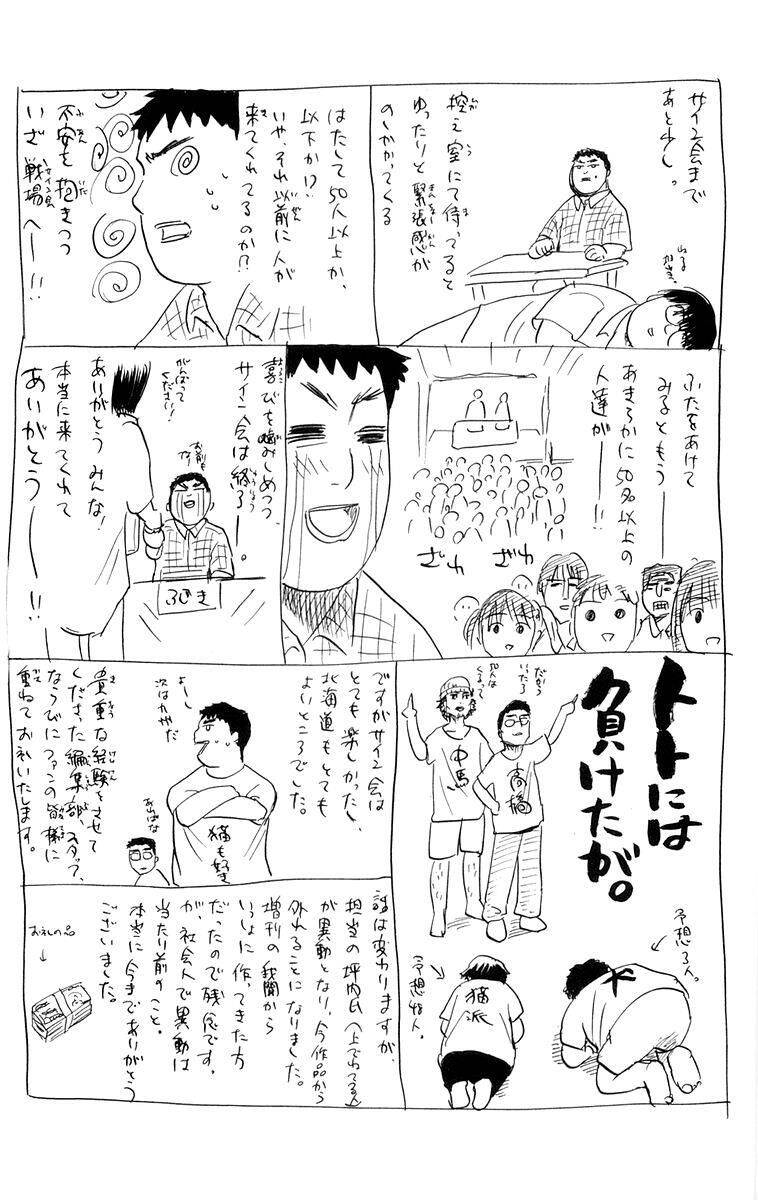 サイン会まで
あと少し。
控え室にて待ってると
ひか
しつ
ま
ゆったりと緊張感が
きんちょうかん
のしかかってくる
はたして50人以上か、
以下か!?
いや、それ以前に人が
いぜん
来てくれてるのか!?
不安を抱きつつ
ふあん
いだ
いざ戦場へー!!
サイン会
ふたをあけて
みるともうー
あきらかに50名以上の
人達がー!!
ざわ
ざわ
喜びを噛みしめつつ、
よろこ
サイン会は終了ー。
しゅうりょう
がんばって
ください!
ありがとうみんな!
本当に来てくれて
ありがとうー!!
ふじき
トトには
負けたが。
だから
いったろ
中馬
高橋
予想3人。
予想10人。
猫派
ですがサイン会は
とても楽しかったし、
北海道もとても
よいところでした。
よーし
次は
猫も好き
貴重な経験をさせて
きちょう
けいけん
くださった編集部、スタッフ、
ならびにファンの皆様に
重ねてお礼いたします。
話は変わりますが、
担当の坪内氏(上ででてる人)
が異動となり、今作品から
外れることになりました。
増刊の
いっしょに作ってきた方
だったので残念です。
が、社会人で異動は
当たり前のこと。
本当に今までありがとう
ございました。
お礼の品
↓